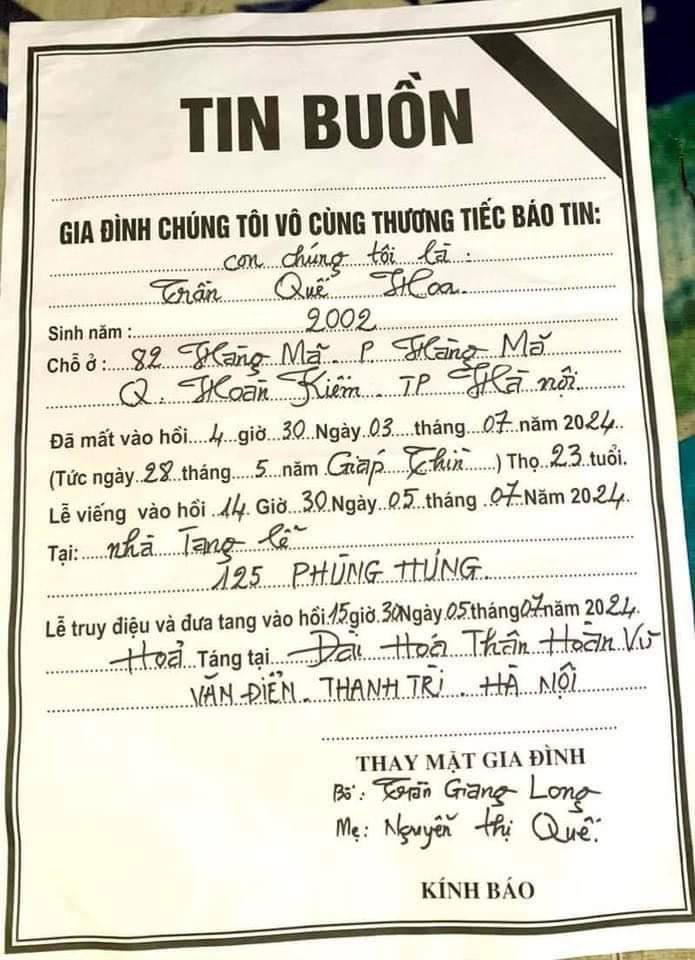 TIN BUỒN
GIA ĐÌNH CHÚNG TÔI VÔ CÙNG THƯƠNG TIẾC BÁO TIN:
con chúng tôi là:
Trần Quế Hoa.
Sinh năm: 2002
Chỗ ở: 82 Hàng Mã. P. Hàng Mã
Q. Hoàn Kiếm. TP Hà nội.
Đã mất vào hồi 4 giờ 30 Ngày 03 tháng 07 năm 2024.
(Tức ngày 28 tháng 5 năm Giáp Thìn) Thọ 23 tuổi.
Lễ viếng vào hồi 14 Giờ 30 Ngày 05 tháng 07 Năm 2024.
Tại: nhà Tang lễ
125 PHÙNG HƯNG.
Lễ truy điệu và đưa tang vào hồi 15 giờ 30 Ngày 05 tháng 07 năm 2024.
Hoả Táng tại Đài Hoá Thân Hoàn Vũ
VĂN ĐIỂN. THANH TRÌ. HÀ NỘI
THAY MẶT GIA ĐÌNH
Bố: Trần Giang Long
Mẹ: Nguyễn thị Quế.
KÍNH BÁO